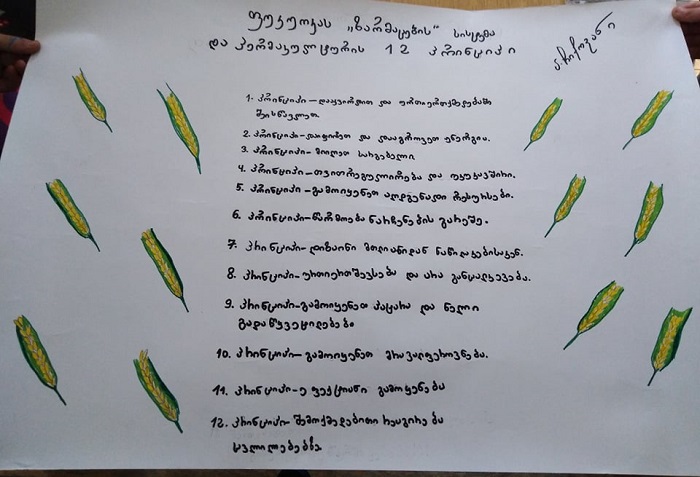 ფუკუოკას „ზარმაცების“ სისტემა
და პერმაკულტურის 12 პრინციპი
1. პრინციპი - დაკვირდით და ურთიერთქმედებაში
შეისწავლეთ
2. პრინციპი - დაიჭირეთ და დააგროვეთ ენერგია.
3. პრინციპი - მიიღეთ სარგებელი
4. პრინციპი - თვითრეგულირება და უკუკავშირი.
5. პრინციპი - გამოიყენეთ აღდგენადი რესურსები.
6. პრინციპი - წარმოება ნარჩენების გარეშე.
7. პრინციპი - დიზაინი მთლიანიდან ნაწილებისაკენ.
8. პრინციპი - ურთიერთშევსება და არა განცალკევება.
9. პრინციპი - გამოიყენეთ პატარა და ნელი
გადაწყვეტილებები
10. პრინციპი - გამოიყენეთ მრავალფეროვნება.
11. პრინციპი - ეფექტიანი გამოყენება
12. პრინციპი - შემოქმედებითი რეაგირება
ცვლილებებზე